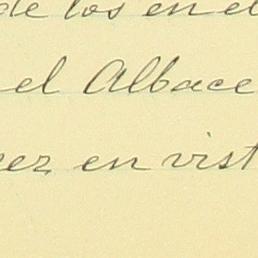 de los en el
el Albace
ez en vist